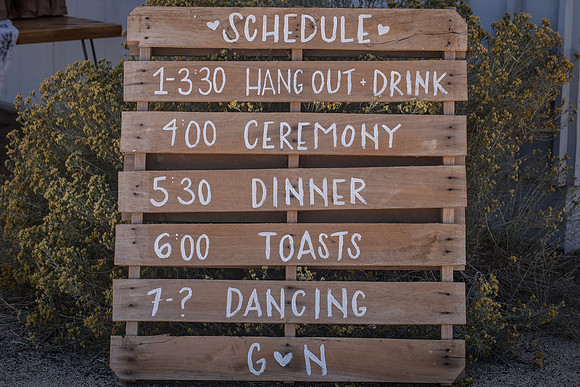 ♥ SCHEDULE ♥
1-3:30 HANG OUT + DRINK
4:00 CEREMONY
5:30 DINNER
6:00 TOASTS
7-? DANCING
G ♥ N